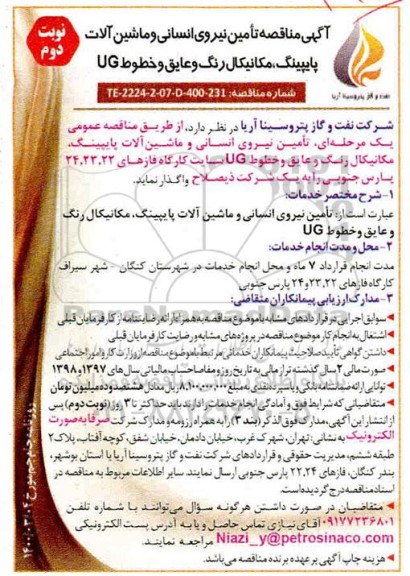 نوبت دوم
آگهی مناقصه تأمین نیروی انسانی و ماشین آلات
پایپینگ، مکانیکال رنگ و عایق و خطوط UG
شماره مناقصه: TE-2224-2-07-D-400-231
نفت و گاز پتروسینا آریا
شرکت نفت و گاز پتروسینا آریا در نظر دارد، از طریق مناقصه عمومی
یک مرحله‌ای، تأمین نیروی انسانی و ماشین آلات پایپینگ،
مکانیکال رنگ و عایق و خطوط UG سایت کارگاه فازهای ۲۴،۲۳،۲۲
پارس جنوبی را به یک شرکت ذیصلاح واگذار نماید.
۱- شرح مختصر خدمات:
عبارت است از: تأمین نیروی انسانی و ماشین آلات پایپینگ، مکانیکال رنگ
و عایق و خطوط UG
۲- محل و مدت انجام خدمات:
مدت انجام قرارداد ۷ ماه و محل انجام خدمات در شهرستان کنگان - شهر سیراف
کارگاه فازهای ۲۳،۲۲ و ۲۴ پارس جنوبی
۳- مدارک ارزیابی پیمانکاران متقاضی:
سوابق اجرایی در قراردادهای مشابه با موضوع مناقصه به همراه ارائه رضایتنامه از کارفرمایان قبلی
اشتغال به انجام کار موضوع مناقصه در پروژه‌های مشابه و رضایت کارفرمایان قبلی
داشتن گواهی تأیید صلاحیت پیمانکاران خدماتی مرتبط با موضوع مناقصه از وزارت کار و امور اجتماعی
صورت مالی ۲ سال گذشته تراز مالی به تاریخ روز و مفاصا حساب مالیاتی سال های ۱۳۹۷ و ۱۳۹۸
توانایی ارائه ضمانتنامه بانکی یا سپرده نقدی به مبلغ ۸،۱۰۰،۰۰۰،۰۰۰ ریال معادل هشتصد و ده میلیون تومان
متقاضیانی که شرایط فوق و آمادگی انجام خدمات را دارند باید حداکثر تا ۳ روز (نوبت دوم) پس
از انتشار این آگهی، مدارک فوق الذکر (بند ۳) را به همراه رزومه و مدارک شرکت صرفا به صورت
الکترونیک به نشانی: تهران، شهرک غرب، خیابان دادمان، خیابان شفق، کوچه آفتاب، پلاک ۲
طبقه ششم، مدیریت حقوقی و قراردادهای شرکت نفت و گاز پتروسینا آریا یا استان بوشهر،
بندر کنگان، فازهای ۲۲،۲۴ پارس جنوبی ارسال نمایند. سایر اطلاعات مربوط به مناقصه در
اسناد مناقصه درج گردیده است.
متقاضیان در صورت داشتن هرگونه سؤال می‌توانند با شماره تلفن
۰۹۱۷۷۲۳۶۸۰۱ آقای نیازی تماس حاصل و یا به آدرس پست الکترونیکی
Niazi_y@petrosinaco.com مراجعه نمایند.
هزینه چاپ آگهی بر عهده برنده مناقصه می‌باشد.
روزنامه جام جم مورخ ۱۴۰۰/۰۳/۰۴